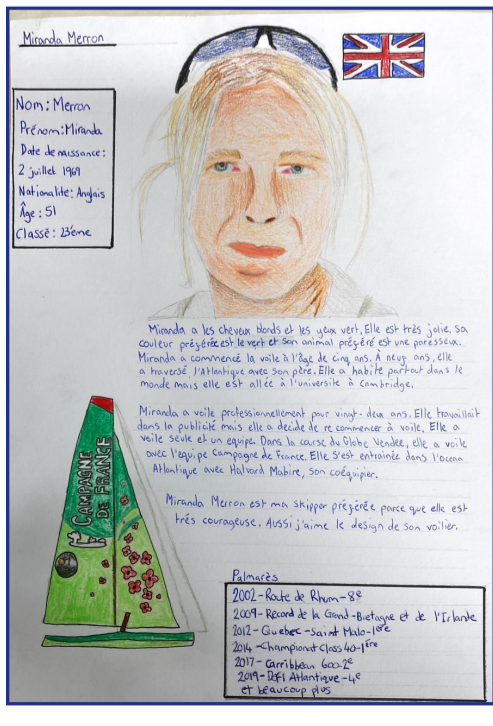 Miranda Merron
Nom: Merron
Prénom: Miranda
Date de naissance:
2 juillet 1969
Nationalite: Anglais
Âge: 51
Classé: 23ème
Miranda a les cheveux blonds et les yeux vert. Elle est très jolie. sa
couleur préférée est le vert et son animal préféré est une paresseux.
Miranda a commencé la voile à l'âge de cinq ans. À neuf ans, elle
a traversé l'Atlantique avec son père. Elle a habité partout dans le
monde mais elle est allée à l'universite à Cambridge.
Miranda a voile professionnellement pour vingt-deux ans. Elle travaillait
dans la publicité mais elle a decide de recommencer à voile. Elle a
voile seule et un equipe. Dans la course du Globe Vendee, elle a voile
avec l'equipe Campagne de France. Elle s'est entrainée dans l'ocean
Atlantique avec Halvard Mabire, son coéquipier.
Miranda Merron est ma skipper préférée parce que elle est
trés courageuse. Aussi j'aime le design de son voilier.
CAMPAGNE
DE FRANCE
Palmarès
2002-Route de Rhum-8e
2009-Record de la Grand-Bretagne et de l'Irlande
2012-Quebec-Saint Malo-1ère
2014-Championat Class 40-1ère
2017-Carribbean 600-2e
2019-Défi Atlantique-4e
et beaucoup plus